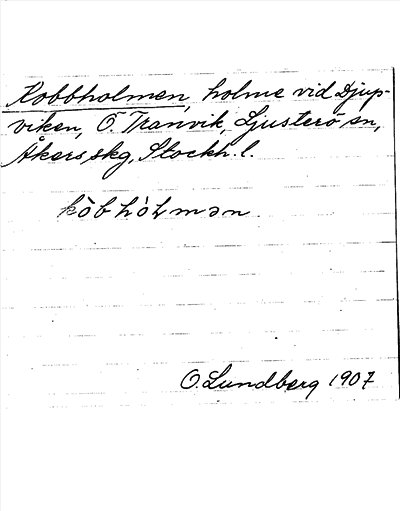 Kobbholmen, holme vid Djup-
viken, Ö. Tranvik, Ljusterö sn,
Åkers skg, Stockh. l.
kòbhòlmən
O. Lundberg 1907